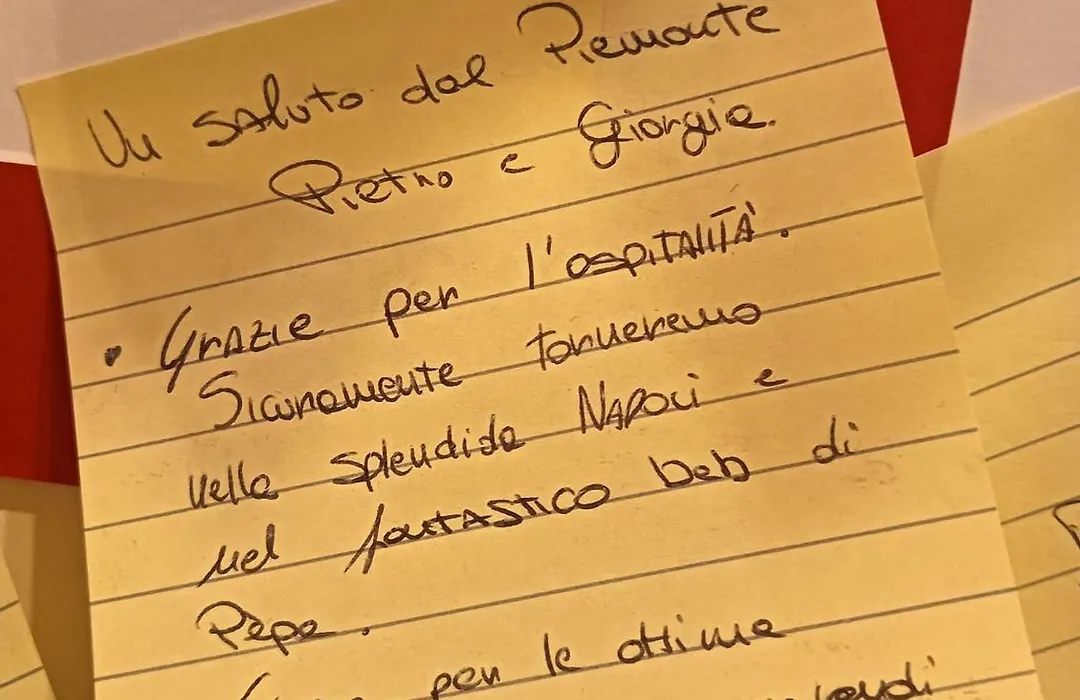 Un saluto dal Piemonte
Pietro e Giorgia.
• Grazie per l'ospitalità.
Sicuramente torneremo
nella splendida Napoli e
nel fantastico beb di
Pepe.
per le ottime